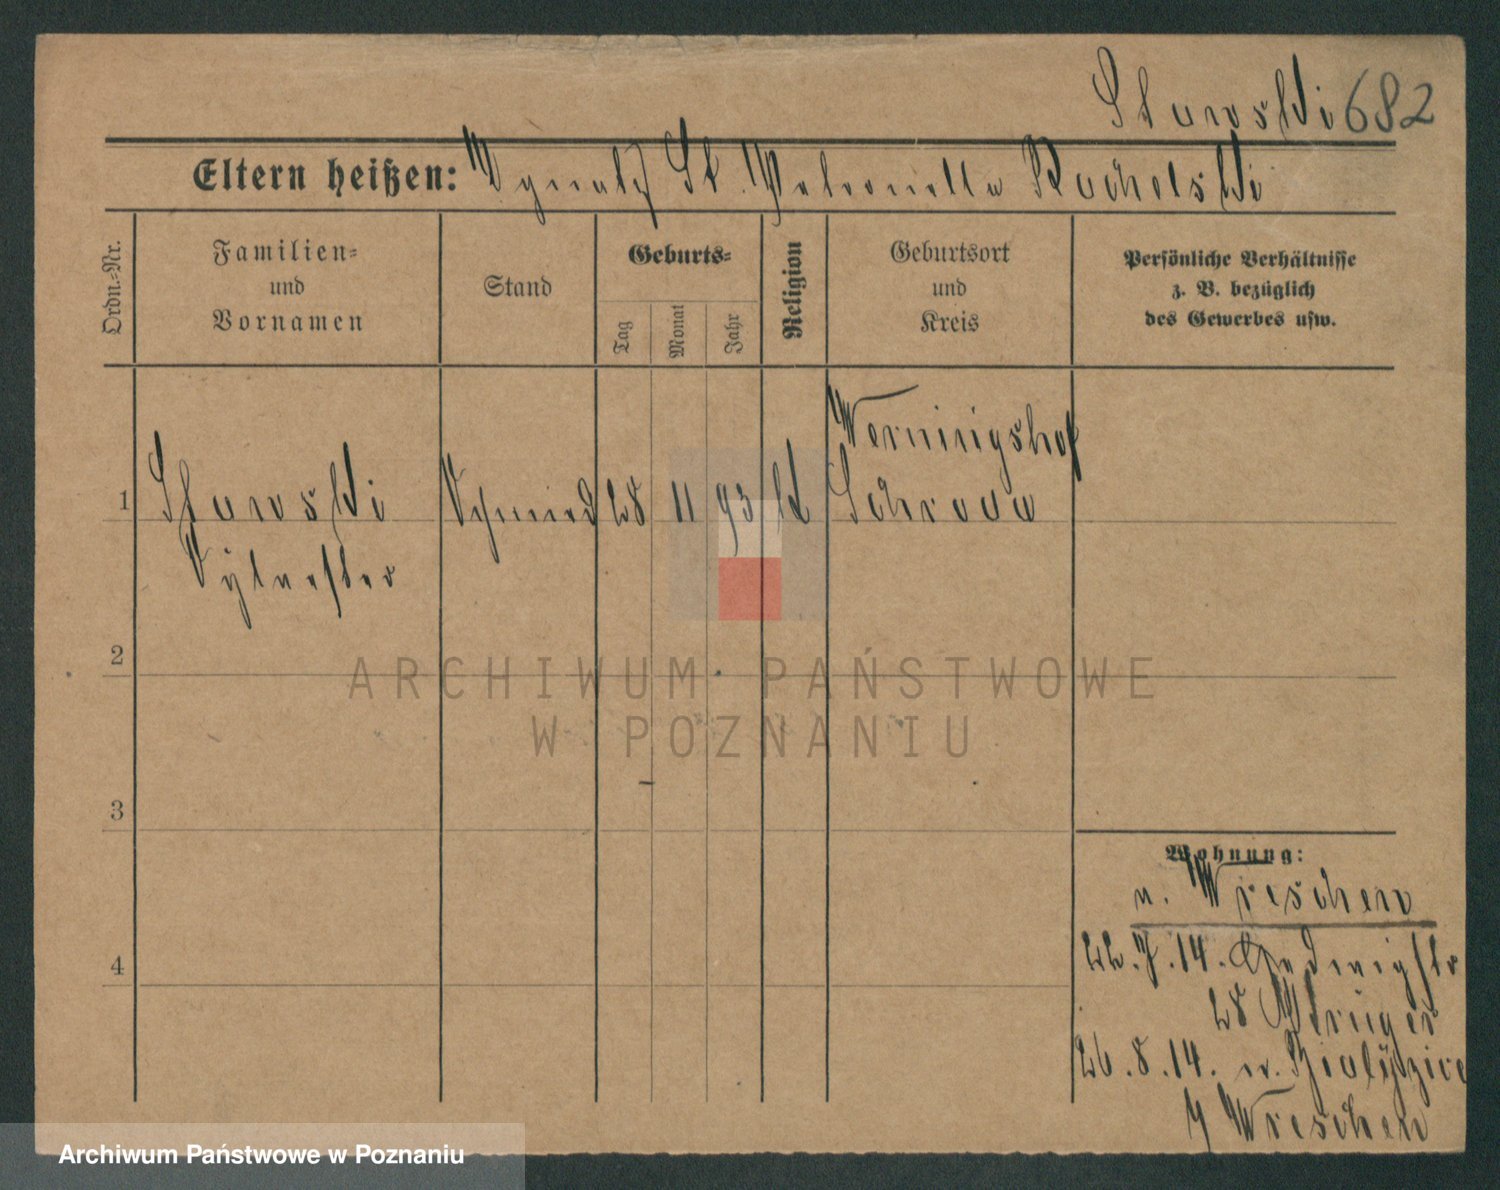 Stawski 682
Eltern heißen: Ignatz St. Petronella Rochelski
Ordn.-Nr.
Familien-
und
Vornamen
Stand
Geburts-
Tag
Monat
Jahr
Religion
Geburtsort
und
Kreis
Persönliche Verhältnisse
z. B. bezüglich
des Gewerbes usw.
Werningshof
1 Stawski Schmied 28 11 93 kt Schroda
Sylvester
2
3
4
Wohnung:
n. Wreschen
22.7.14. Hedwigstr
28 Krüger
26.8.14. n.
Wreschen
ARCHIWUM PAŃSTWOWE
W POZNANIU
Archiwum Państwowe w Poznaniu